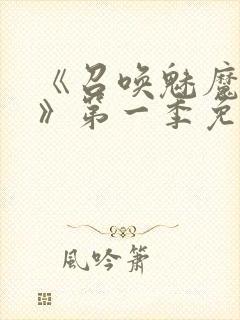 《召唤魅魔
》第一季免
風吟簫